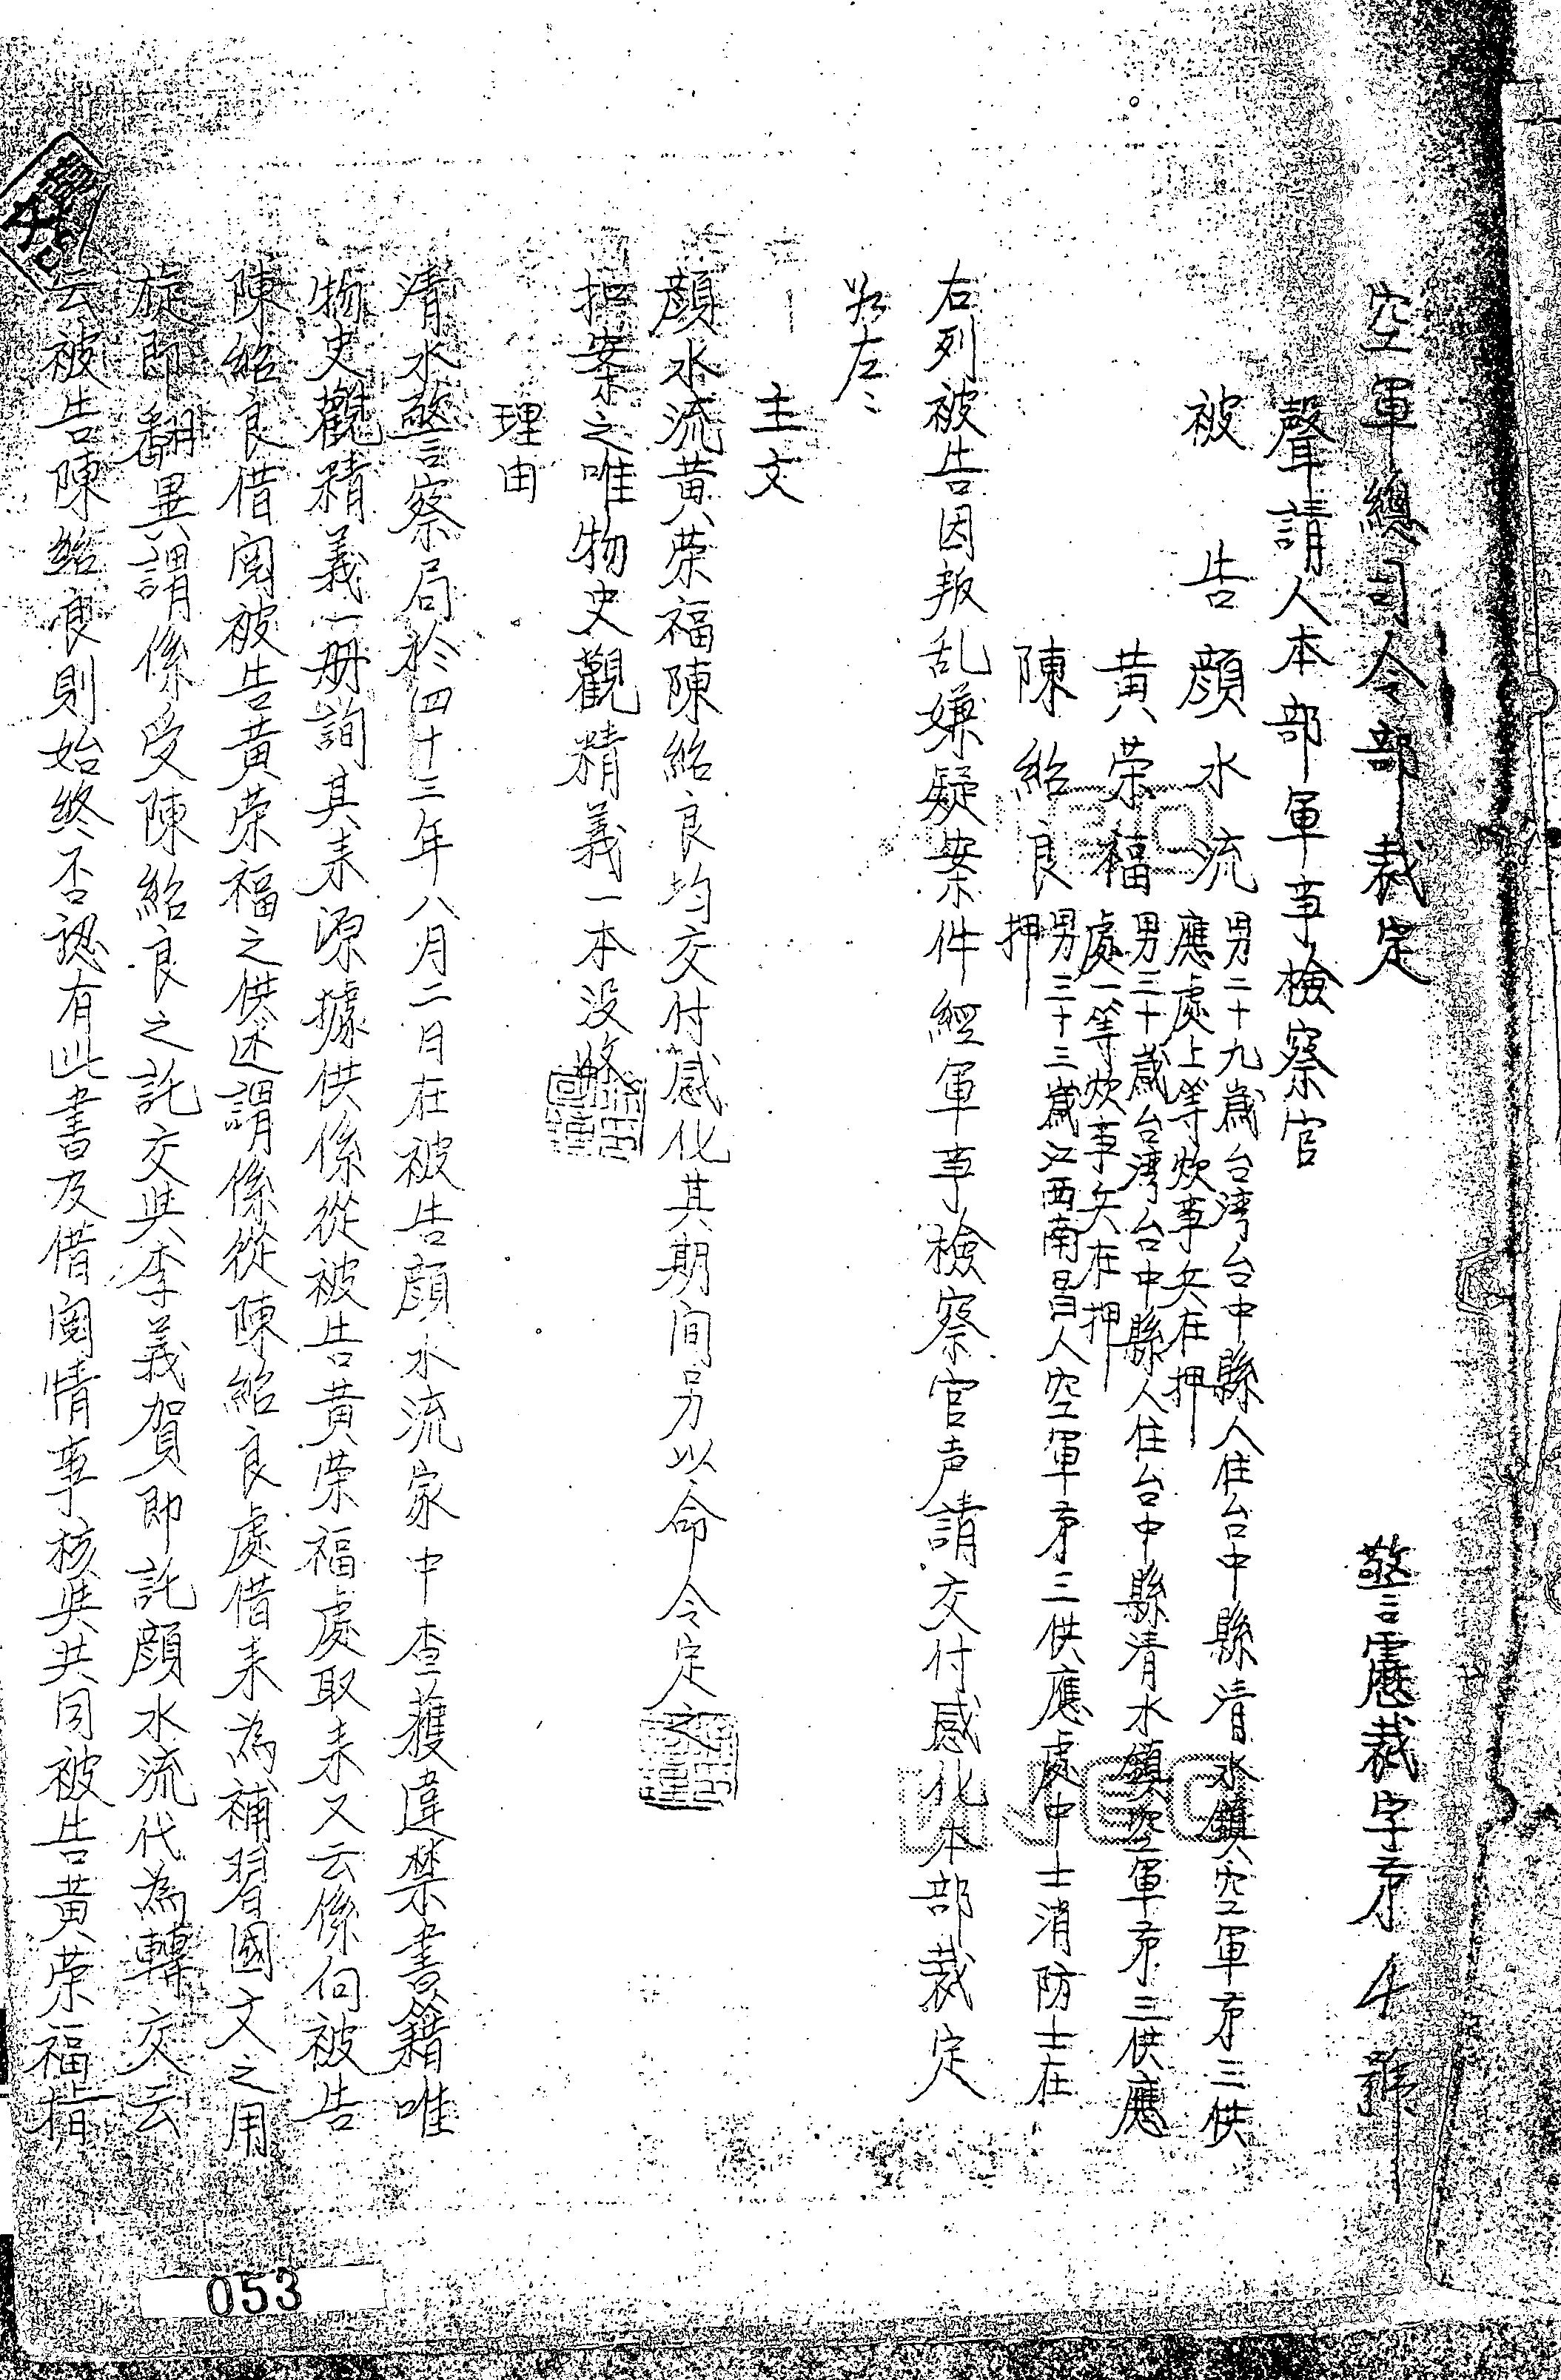 空軍總司令部裁定
警憲裁字第4號
聲請人本部軍事檢察官
被告顏水流男二十九歲台湾台中縣人住台中縣清水鎮空軍第三供
應處上等炊事兵在押
黄荣福男三十歲台湾台中縣人住台中縣清水鎮空軍第三供應
處一等炊事兵在押
陳紹良男三十三歲江西南昌人空軍第三供應處中士消防士在
押
右列被告因叛乱嫌疑案件經軍事檢察官声請交付感化本部裁定
如左:
主文
顏水流黄荣福陳紹良均交付感化其期间另以命令定之
扣案之唯物史觀精義一本没收
理由
清水警察局於四十三年八月二日在被告顏水流家中查獲違禁書籍唯
物史觀精義一册詢其来源據供係從被告黄荣福處取来又云係向被告
陳紹良借閱被告黄荣福之供述謂係從陳紹良處借来為補習國文之用
旋即翻異謂係受陳紹良之託交與李義賀即託顏水流代為轉交云
云被告陳紹良則始終否認有此書及借閱情事核與共同被告黄荣福指
053